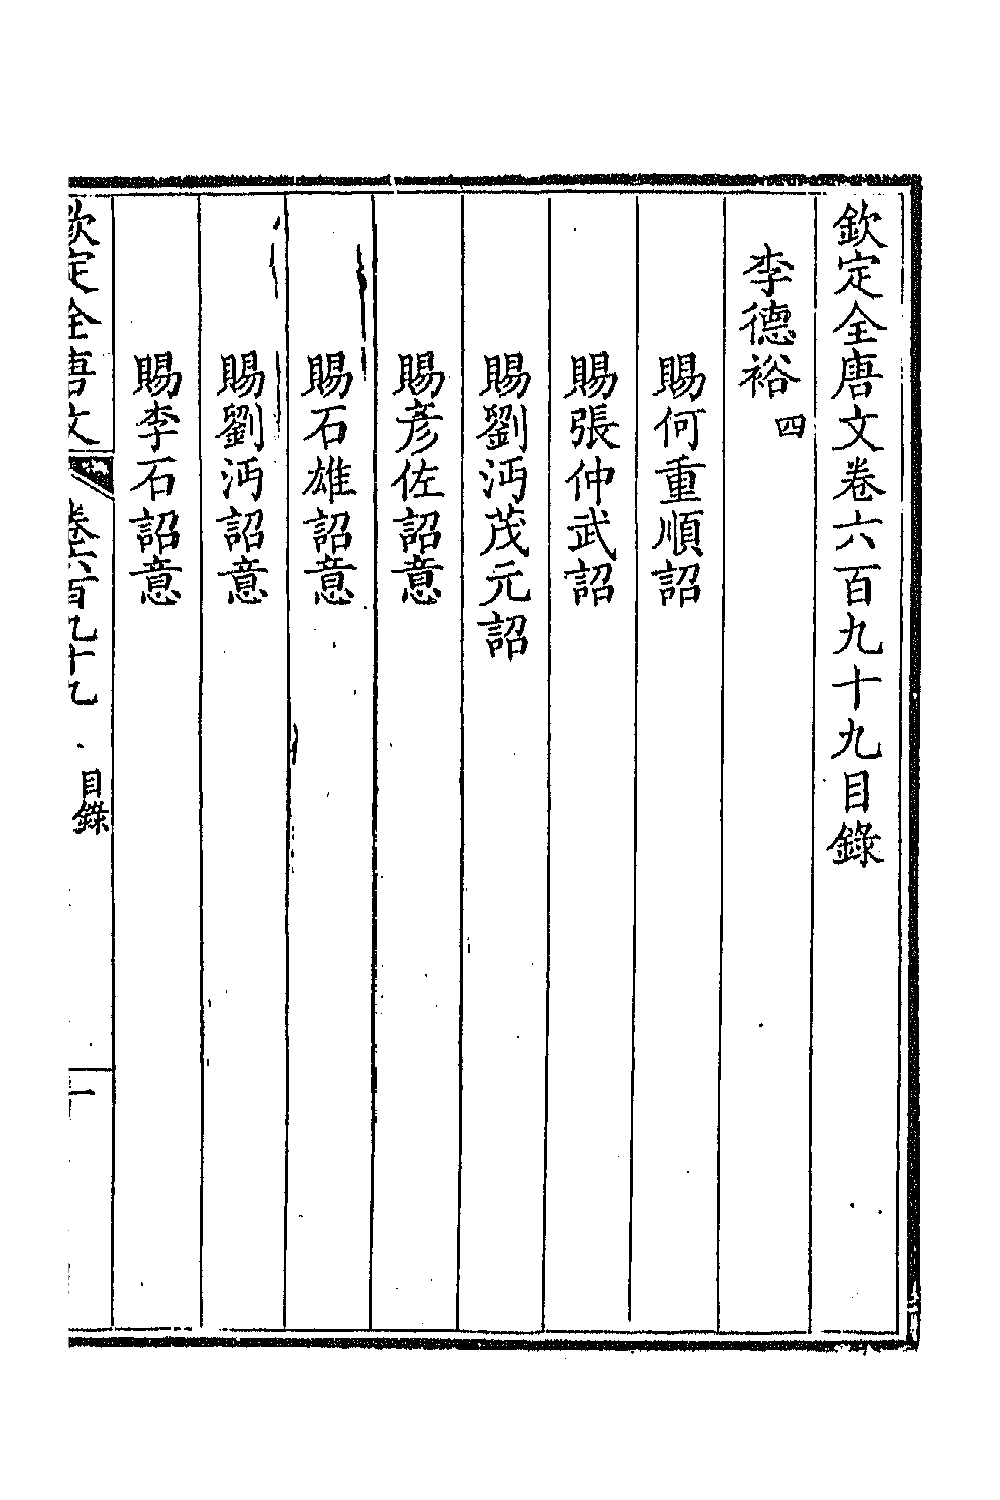 欽定全唐文卷六百九十九目錄
李德裕四
賜何重順詔
賜張仲武詔
賜劉沔茂元詔
賜彥佐詔意
賜石雄詔意
賜劉沔詔意
賜李石詔意
欽定全唐文 卷六百九十九 目錄 一